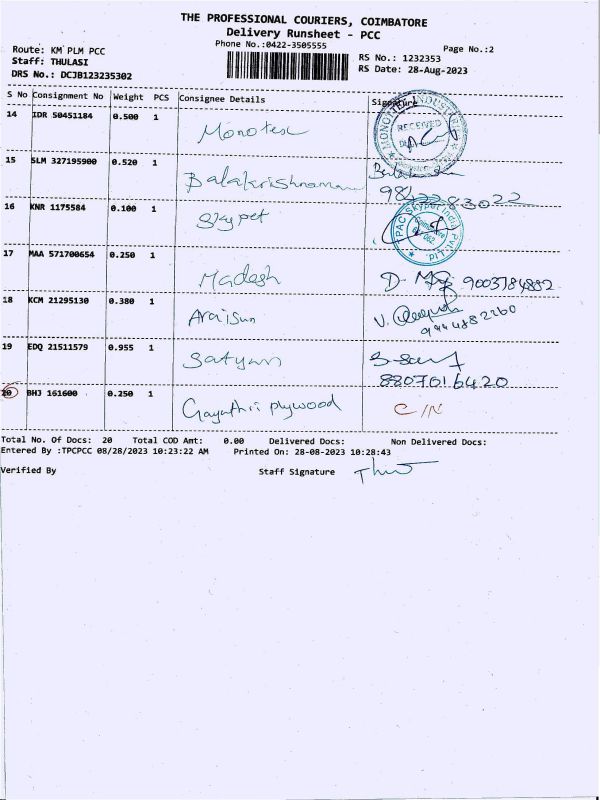 THE PROFESSIONAL COURIERS, COIMBATORE
Delivery Runsheet - PCC
Phone No.:0422-3505555
Page No.:2
Route: KM PLM PCC
RS No.: 1232353
Staff: THULASI
RS Date: 28-Aug-2023
DRS No.: DCJB123235302
S No Consignment No Weight PCS Consignee Details Signature
14 IDR 50451184 0.500 1 Monotex
RECEIVED
15 SLM 327195900 0.520 1 Balakrishnaman
16 KNR 1175584 0.100 1 Skypet
17 MAA 571700654 0.250 1 Madesh 9003784882
18 KCM 21295130 0.380 1 Araisun
9944882260
19 EDQ 21511579 0.955 1 Satyam
8807016420
20 BHJ 161600 0.250 1 Gayathri plywood C/N
Total No. Of Docs: 20 Total COD Amt: 0.00 Delivered Docs: Non Delivered Docs:
Entered By :TPCPCC 08/28/2023 10:23:22 AM Printed On: 28-08-2023 10:28:43
Verified By Staff Signature